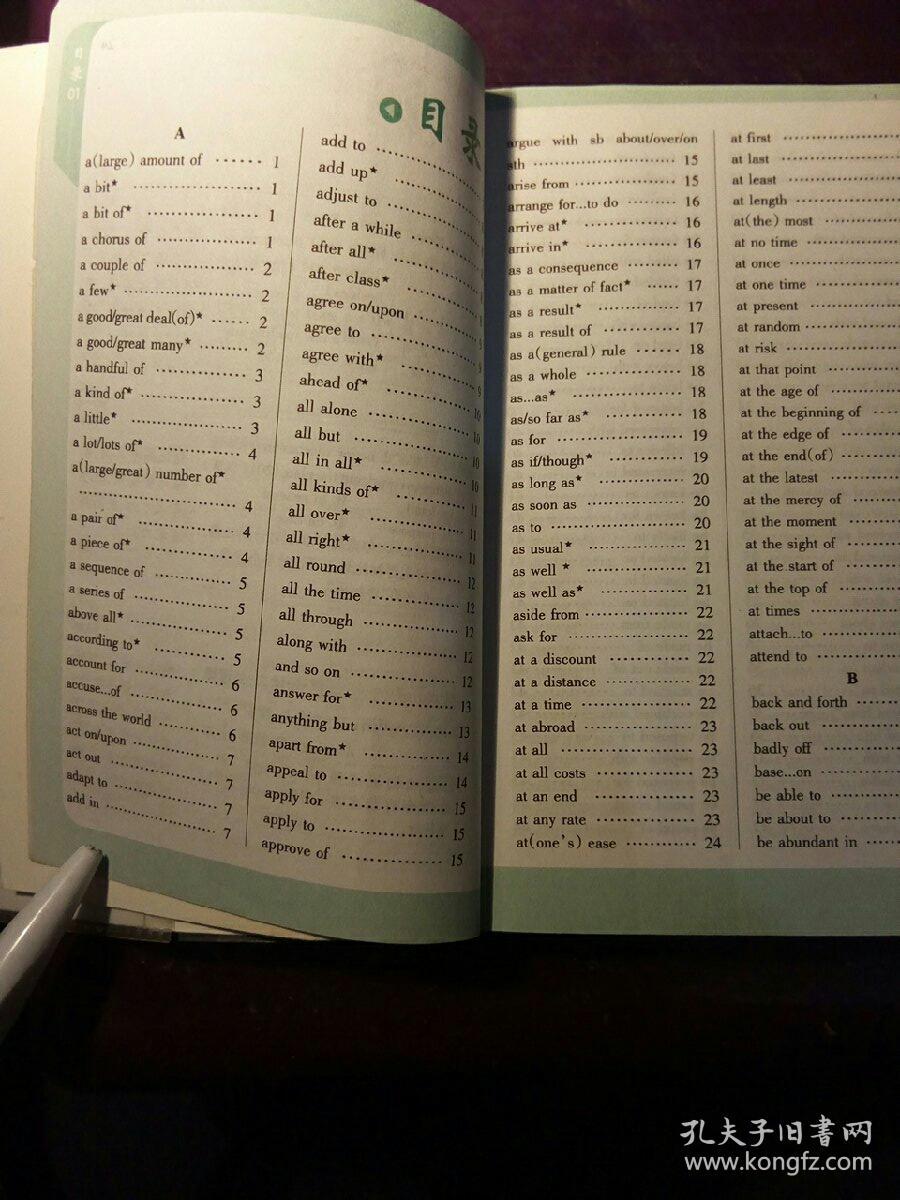 目录
01
目录
A
a(large) amount of ······ 1
a bit* ·················· 1
a bit of* ················ 1
a chorus of ·············· 1
a couple of ·············· 2
a few* ·················· 2
a good/great deal(of)* ······ 2
a good/great many* ······· 2
a handful of ·············· 3
a kind of* ················ 3
a little* ·················· 3
a lot/lots of* ·············· 4
a(large/great) number of*
·························· 4
a pair of* ················ 4
a piece of* ················ 4
a sequence of ············ 5
a series of ················ 5
above all* ················ 5
according to* ············ 5
account for ·············· 6
accuse...of ················ 6
across the world ·········· 6
act on/upon ·············· 7
act out ···················· 7
adapt to ·················· 7
add in ···················· 7
add to ··················
add up* ················
adjust to ················
after a while ············
after all* ················
after class* ··············
agree on/upon ············
agree to ················ 9
agree with* ·············· 9
ahead of* ················ 9
all alone ················ 10
all but ·················· 10
all in all* ················ 10
all kinds of* ·············· 10
all over* ················ 11
all right* ················ 11
all round ················ 11
all the time ·············· 12
all through ·············· 12
along with ·············· 12
and so on ················ 12
answer for* ·············· 12
anything but ············ 13
apart from* ·············· 13
appeal to ················ 14
apply for ················ 14
apply to ················ 15
approve of ·············· 15
15
argue with sb about/over/on
sth ···················· 15
arise from ·············· 15
arrange for...to do ········ 16
arrive at* ·············· 16
arrive in* ·············· 16
as a consequence ········· 17
as a matter of fact* ······ 17
as a result* ············ 17
as a result of ············ 17
as a(general) rule ······ 18
as a whole ·············· 18
as...as* ················ 18
as/so far as* ············ 18
as for ·················· 19
as if/though* ············ 19
as long as* ·············· 20
as soon as ·············· 20
as to ···················· 20
as usual* ················ 21
as well * ················ 21
as well as* ·············· 21
aside from ·············· 22
ask for ·················· 22
at a discount ············ 22
at a distance ············ 22
at a time ················ 22
at abroad ················ 23
at all ···················· 23
at all costs ·············· 23
at an end ················ 23
at any rate ·············· 23
at(one's) ease ············ 24
at first ················
at last ················
at least ················
at length ··············
at(the) most ············
at no time ··············
at once ················
at one time ············
at present ··············
at random ··············
at risk ················
at that point ············
at the age of ············
at the beginning of ····
at the edge of ··········
at the end(of) ··········
at the latest ············
at the mercy of ········
at the moment ··········
at the sight of ··········
at the start of ··········
at the top of ············
at times ················
attach...to ··············
attend to ··············
B
back and forth ········
back out ··············
badly off ··············
base...on ··············
be able to ············
be about to ············
be abundant in ········
孔夫子旧书网
www.kongfz.com